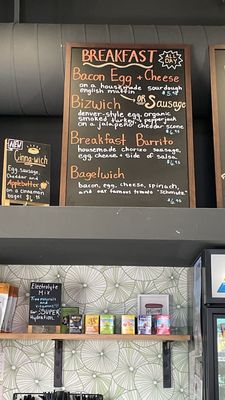 BREAKFAST
ALL DAY
Bacon Egg + Cheese
on a housemade sourdough
english muffin
or Sausage
Bizwich
denver-style egg, organic
smoked turkey + pepperjack
on a jalapeño cheddar scone
Breakfast Burrito
housemade chorizo sausage,
egg, cheese + side of salsa
Bagelwich
bacon, egg, cheese, spinach,
and our famous tomato "Schmutz"
NEW
Cinnawich
Egg, Sausage,
Cheddar and
Applebutter
on a cinnamon
bagel
Electrolyte
Mix
SUPER
Hydration